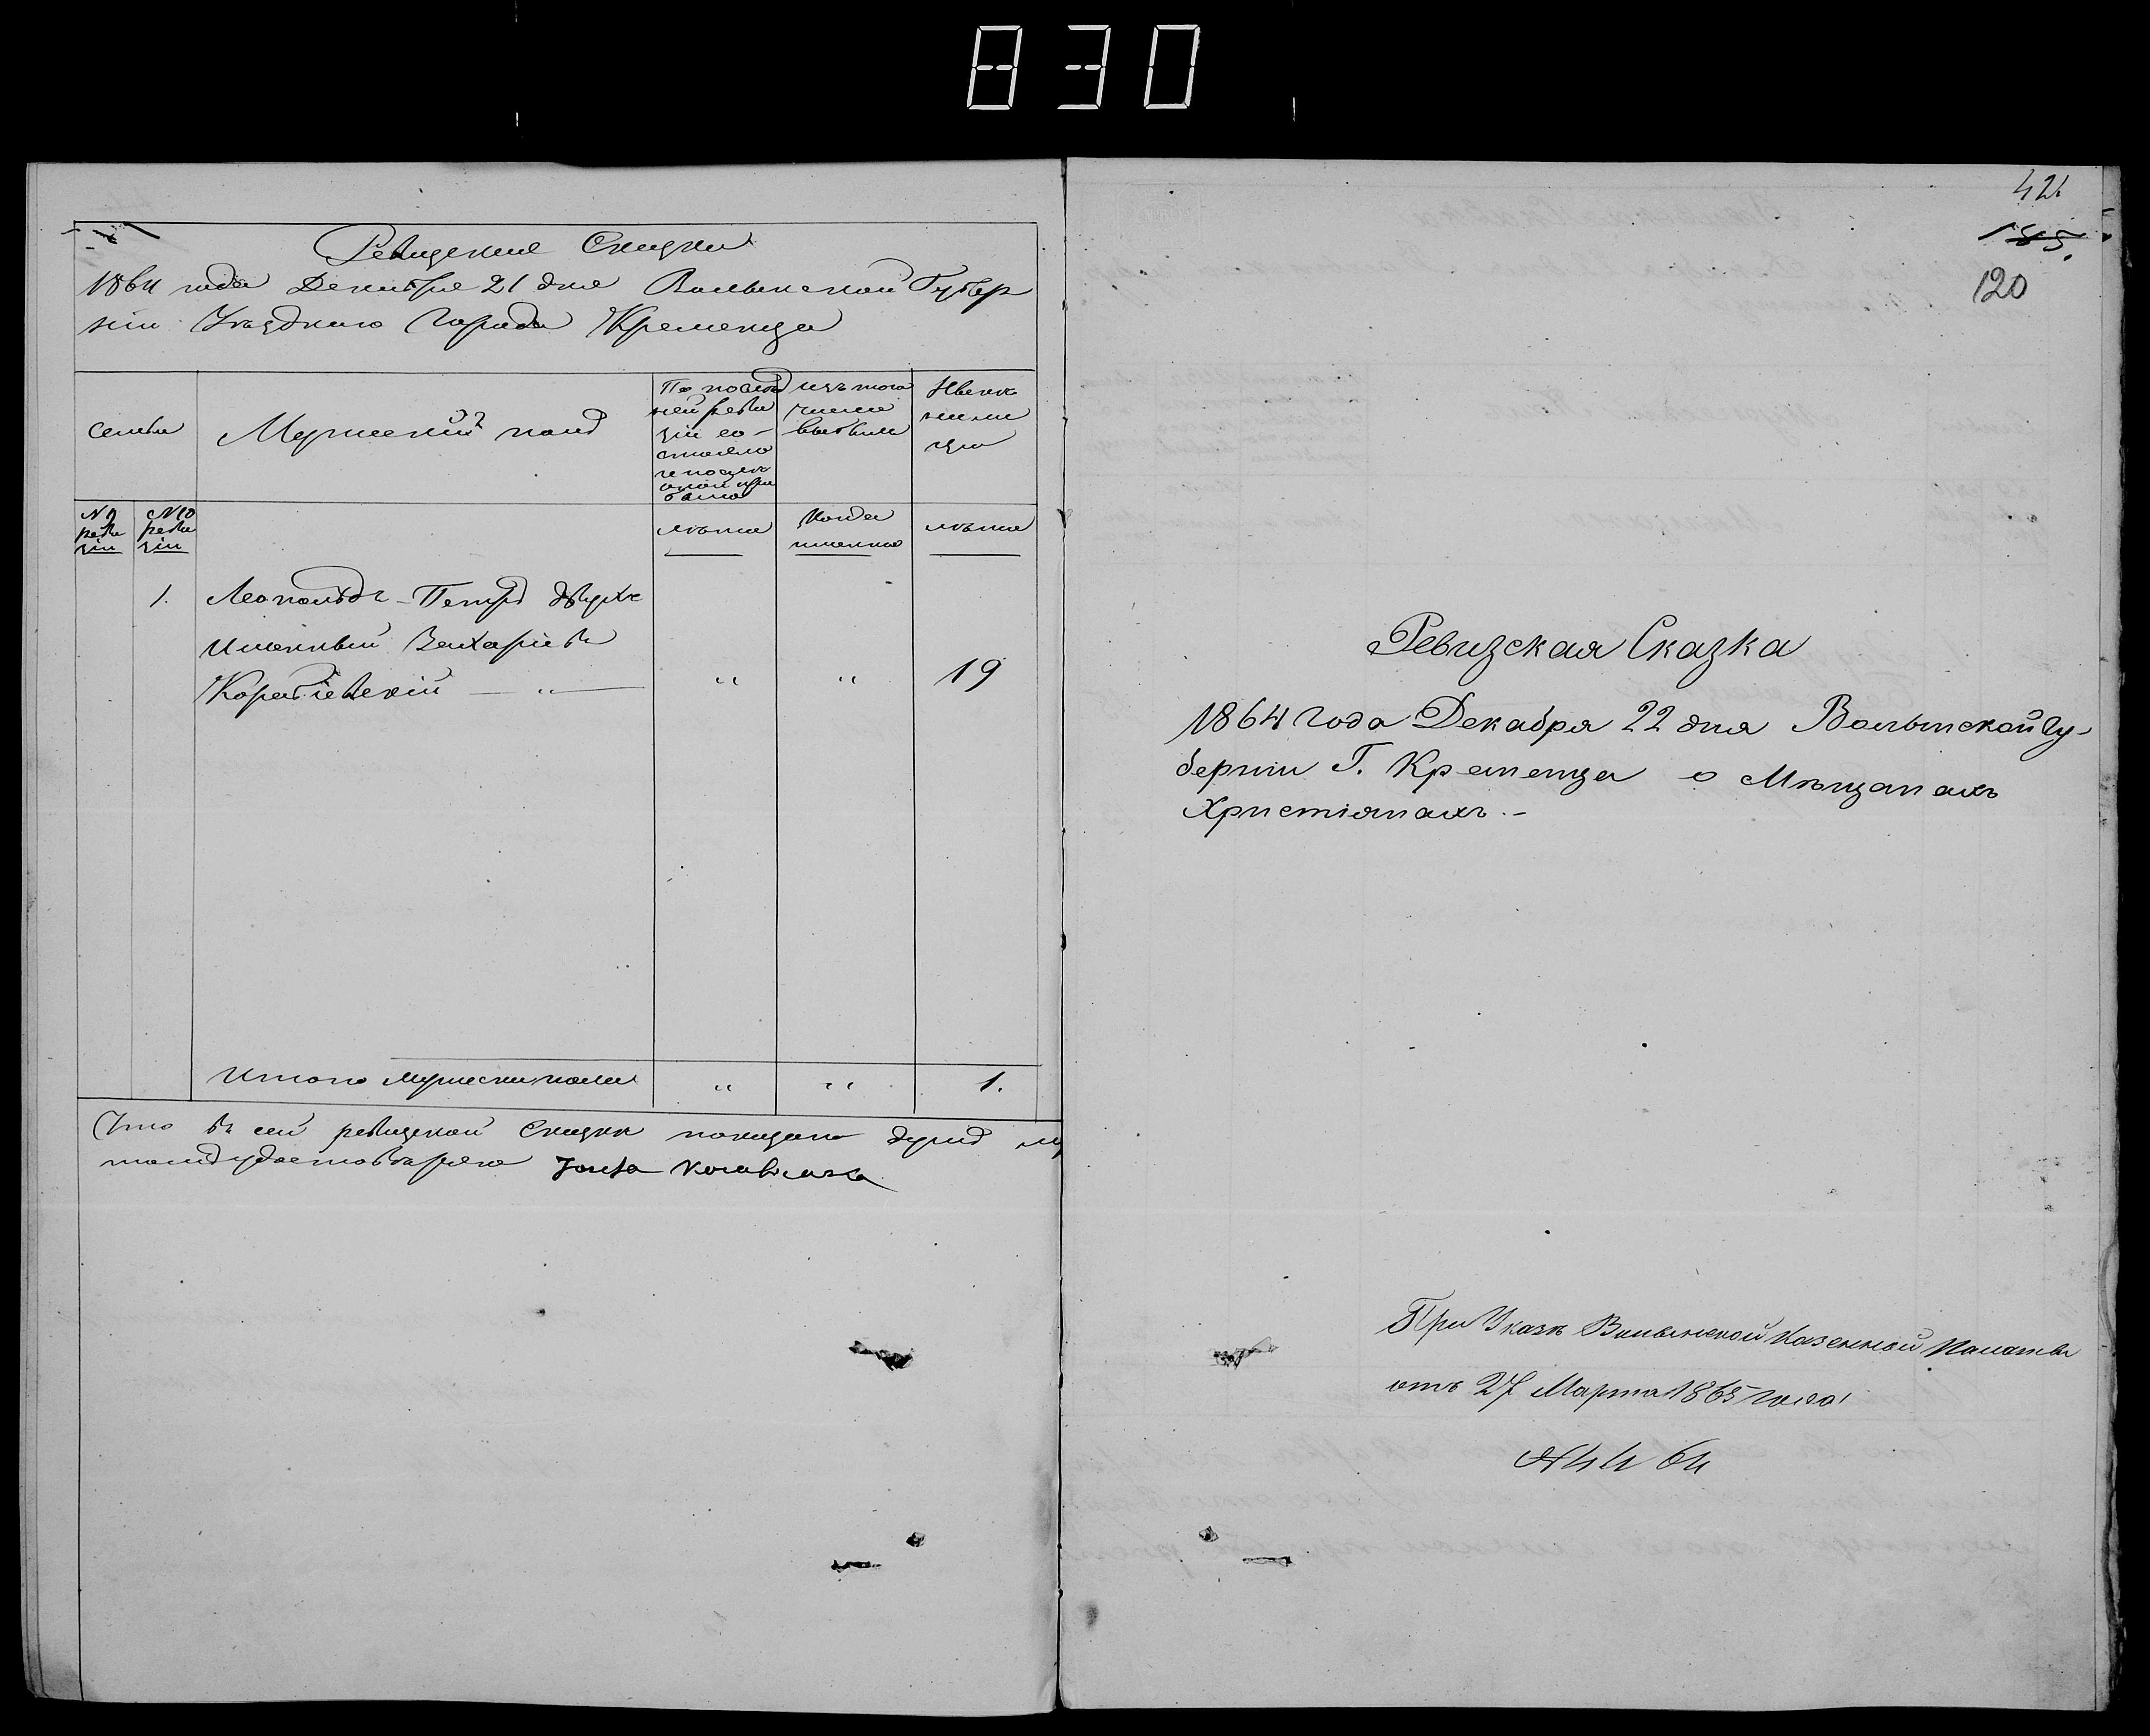 830
Ревизская Сказка
1864 года Декабря 21 дня Волынской Губер
нiи Уезднаго Города Кременца
Семьи
Мужескiй полъ
По послед
ней реви
зiи со-
стояло
и после
оной при
было
изъ того
числа
выбыло
Ныне
на ли
цо
N 9 реви зiи
N 10 реви зiи
лета
Когда именно
лета
1. Леопольдъ-Петръ двухъ
именный Захарiевъ
19
Итого мужеска пола " " 1.
Что въ сей ревизской Сказке показано душъ му
42
120
Ревизская Сказка
1864 года Декабря 22 дня Волынской Гу-
бернiи Г. Кременца о Мѣщанахъ
Христiянахъ.-
При Указѣ Волынской Казенной Палаты
отъ 27 Марта 1865 года
N 4464